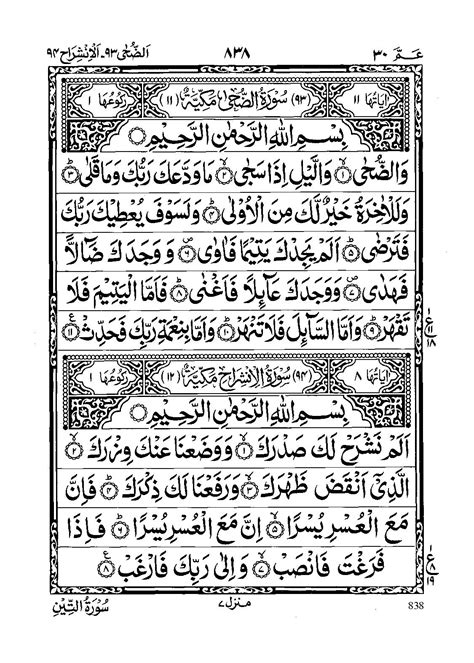 عـمّ ۳۰ ۸۳۸ اَلضُّحٰى ۹۳۔اَلْاِنْشِرَاح ۹۴
اٰیَاتُهَا ۱۱ (۹۳) سُوْرَةُ الضُّحٰى مَكِّيَّةٌ (۱۱) رُكُوْعُهَا ۱
بِسْمِ اللّٰهِ الرَّحْمٰنِ الرَّحِيْمِ
وَالضُّحٰى ۱ وَالَّيْلِ اِذَا سَجٰى ۲ مَا وَدَّعَكَ رَبُّكَ وَمَا قَلٰى ۳
وَلَلْاٰخِرَةُ خَيْرٌ لَّكَ مِنَ الْاُوْلٰى ۴ وَلَسَوْفَ يُعْطِيْكَ رَبُّكَ
فَتَرْضٰى ۵ اَلَمْ يَجِدْكَ يَتِيْمًا فَاٰوٰى ۶ وَوَجَدَكَ ضَآلًّا
فَهَدٰى ۷ وَوَجَدَكَ عَآئِلًا فَاَغْنٰى ۸ فَاَمَّا الْيَتِيْمَ فَلَا
تَقْهَرْ ۹ وَاَمَّا السَّآئِلَ فَلَا تَنْهَرْ ۱۰ وَاَمَّا بِنِعْمَةِ رَبِّكَ فَحَدِّثْ ۱۱
۱ ع ۱۱ ۱۸
اٰیَاتُهَا ۸ (۹۴) سُوْرَةُ الْاِنْشِرَاحِ مَكِّيَّةٌ (۱۲) رُكُوْعُهَا ۱
بِسْمِ اللّٰهِ الرَّحْمٰنِ الرَّحِيْمِ
اَلَمْ نَشْرَحْ لَكَ صَدْرَكَ ۱ وَوَضَعْنَا عَنْكَ وِزْرَكَ ۲
الَّذِيْٓ اَنْقَضَ ظَهْرَكَ ۳ وَرَفَعْنَا لَكَ ذِكْرَكَ ۴ فَاِنَّ
مَعَ الْعُسْرِ يُسْرًا ۵ اِنَّ مَعَ الْعُسْرِ يُسْرًا ۶ فَاِذَا
فَرَغْتَ فَانْصَبْ ۷ وَاِلٰى رَبِّكَ فَارْغَبْ ۸
۱ ع ۸ ۱۹
838 منزل ۷ سُوْرَةُ التِّيْنِ